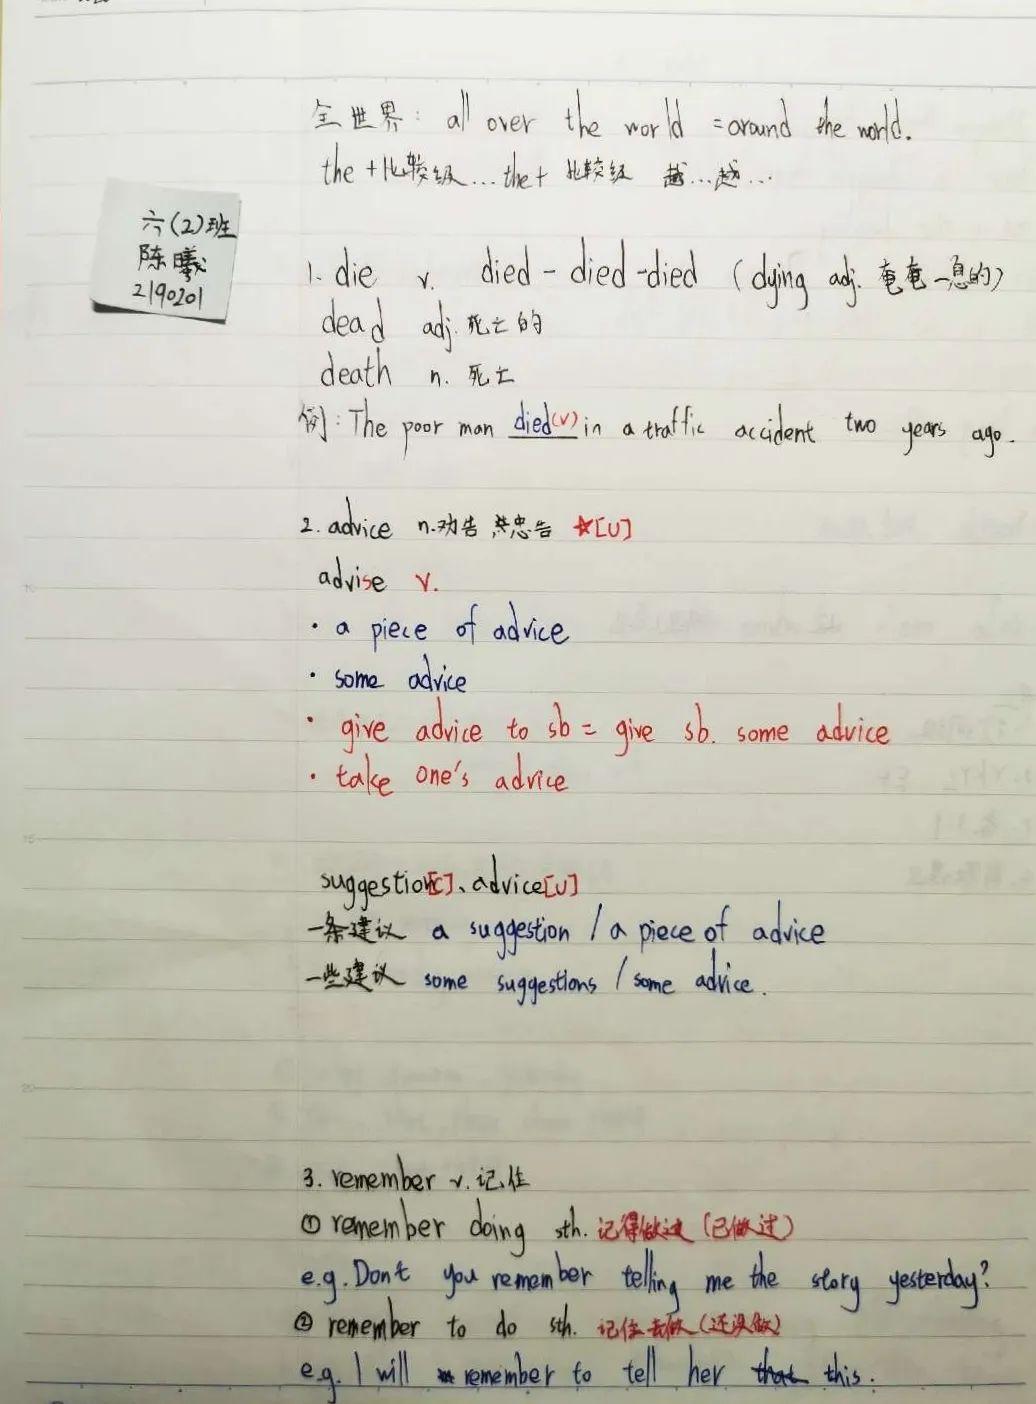 全世界: all over the world = around the world.
the + 比较级...the + 比较级 越...越...
六(2)班
陈曦
2190201
1. die v. died - died - died (dying adj. 奄奄一息的)
dead adj. 死亡的
death n. 死亡
例: The poor man died(v) in a traffic accident two years ago.
2. advice n. 劝告 忠告 ★[U]
advise v.
· a piece of advice
· some advice
· give advice to sb = give sb. some advice
· take one's advice
suggestion[C]、advice[U]
一条建议 a suggestion / a piece of advice
一些建议 some suggestions / some advice.
3. remember v. 记住
① remember doing sth. 记得做过 (已做过)
e.g. Don't you remember telling me the story yesterday?
② remember to do sth. 记住去做 (还没做)
e.g. I will remember to tell her that this.